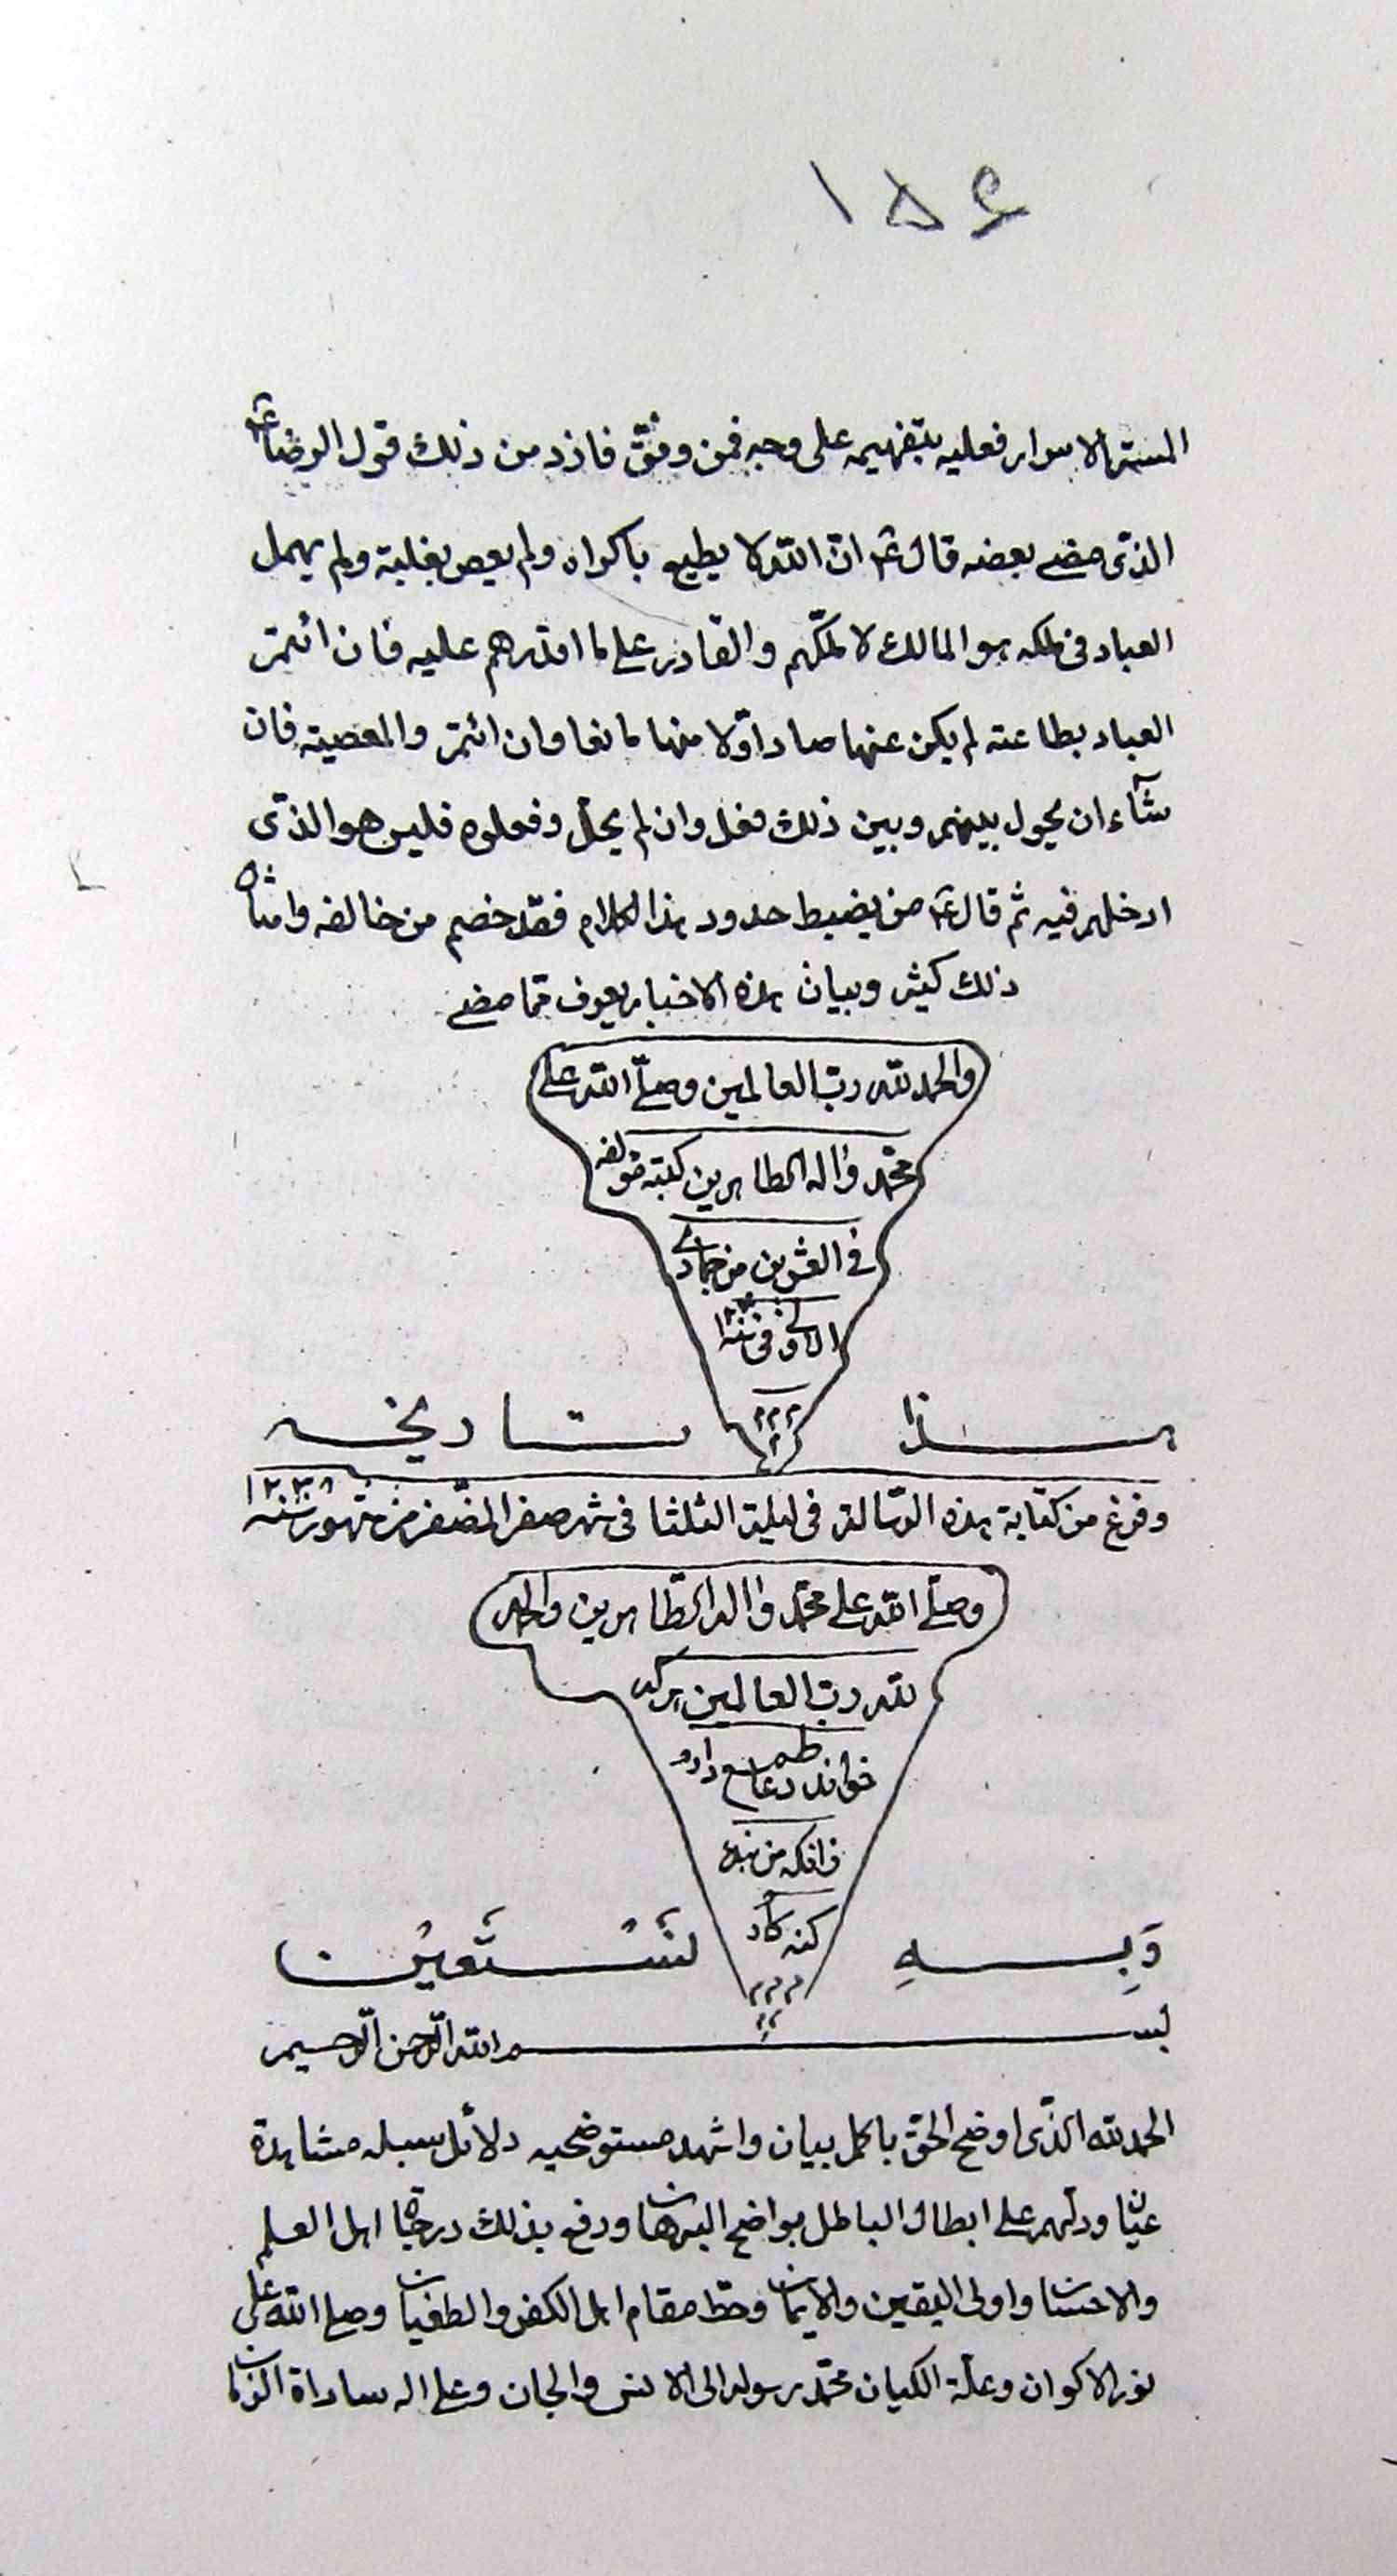 ١٥٤
المستتر الاسرار فعليه بتفهيمه على وجه فمن وفق فازد من ذلك قول الرضا ع
الذى مضى بعضه قال ع ان الله لا يطيع باكراه ولم يعص بغلبة ولم يهمل
العباد فى ملكه هو المالك لا ملكهم والقادر على ما اقدرهم عليه فان ائتمر
العباد بطاعته لم يكن عنها صادا ولا منها مانعا وان ائتمر والمعصيته فان
شآء ان يحول بينهم وبين ذلك فعل وان لم يحل وفعلوه فليس هو الذى
ادخلهم فيه ثم قال ع من يضبط حدود هذا الكلام فقد خصم من خالفه وامثال
ذلك كثير وبيان هذه الاخبار يعرف مما مضى
والحمد لله رب العالمين وصلى الله على
محمد واله الطاهرين كتبه مؤلفه
فى العشرين من جمادى
الاولى فى سنة
هذا تاريخه
وفرغ من كتابة هذه الرسالة فى ليلة الثلثا فى شهر صفر المظفر من شهور سنه ١٢٣٨
وصلى الله على محمد واله الطاهرين والحمد
لله رب العالمين هركه
خواند دعا طمع دارم
زانكه من بنده
كنه كار
وَبِهِ نَسْتَعِيْن
بسم الله الرحمن الرحيم
الحمد لله الذى اوضح الحق باكمل بيان واشهد مستوضحيه دلائل سبله مشاهدة
عيان ودلهم على ابطال الباطل بواضح البرهان ورفع بذلك درجات اهل العلم
والاحسان واولى اليقين والايمان وحط مقام اهل الكفر والطغيان وصلى الله على
نور الاكوان وعلة الكيان محمد رسوله الى الانس والجان وعلى اله ساداة الزمان